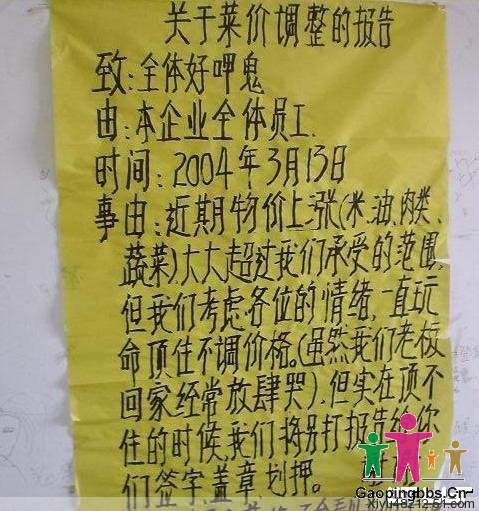 关于菜价调整的报告
致:全体好呷鬼
由:本企业全体员工.
时间:2004年3月13日
事由:近期物价上涨(米、油、肉类、
蔬菜)大大超过我们承受的范围,
但我们考虑各位的情绪,一直玩
命顶住不调价格。(虽然我们老板
回家经常放肆哭).但实在顶不
住的时候,我们将另打报告给你
们签字、盖章、划押。
Gaopingbbs.Cn